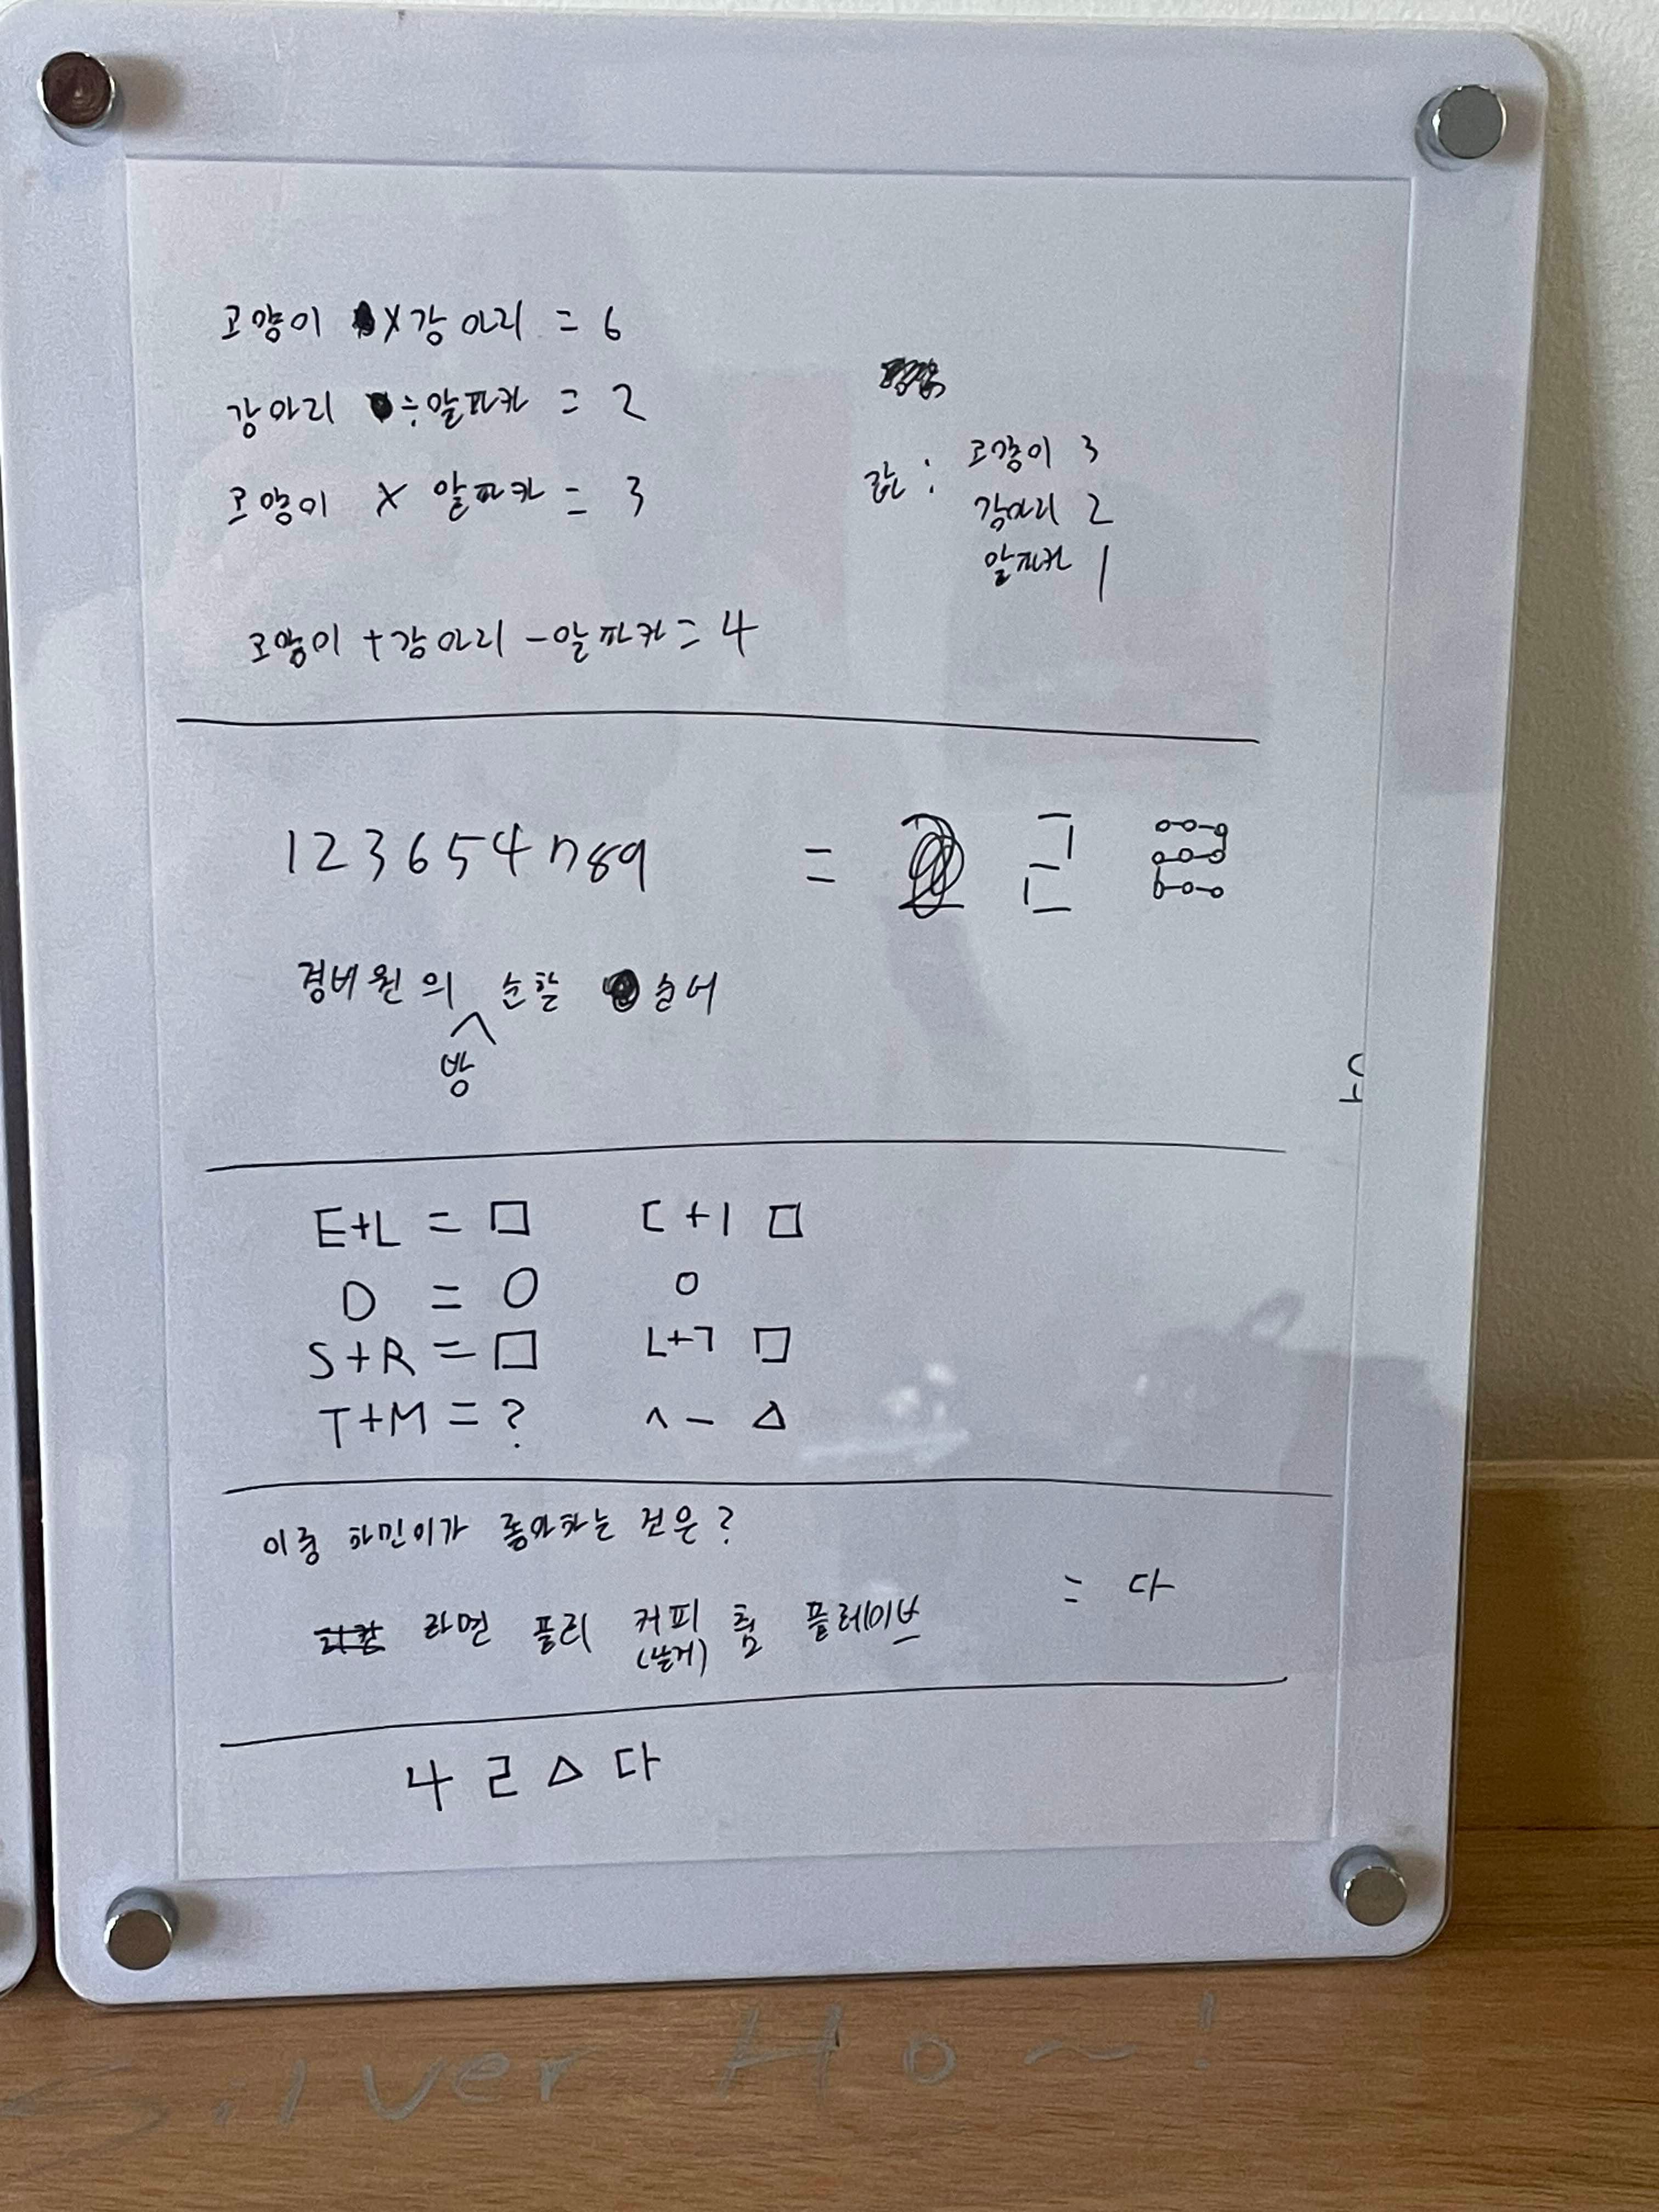 고양이 × 강아지 = 6
강아지 ÷ 알파카 = 2
고양이 × 알파카 = 3
고양이 + 강아지 - 알파카 = 4
값 : 고양이 3
강아지 2
알파카 1
123654789 = ㄹ
경비원의 방 순찰 순서
E+L = □ ㄷ+ㅣ □
O = O ㅇ
S+R = □ ㄴ+ㄱ □
T+M = ? ㅅ ㅡ △
이중 하민이가 좋아하는 것은?
라면 플리 커피 춤 플레이브 = 다
(날계)
4 ㄹ △ 다
Silver Hom!